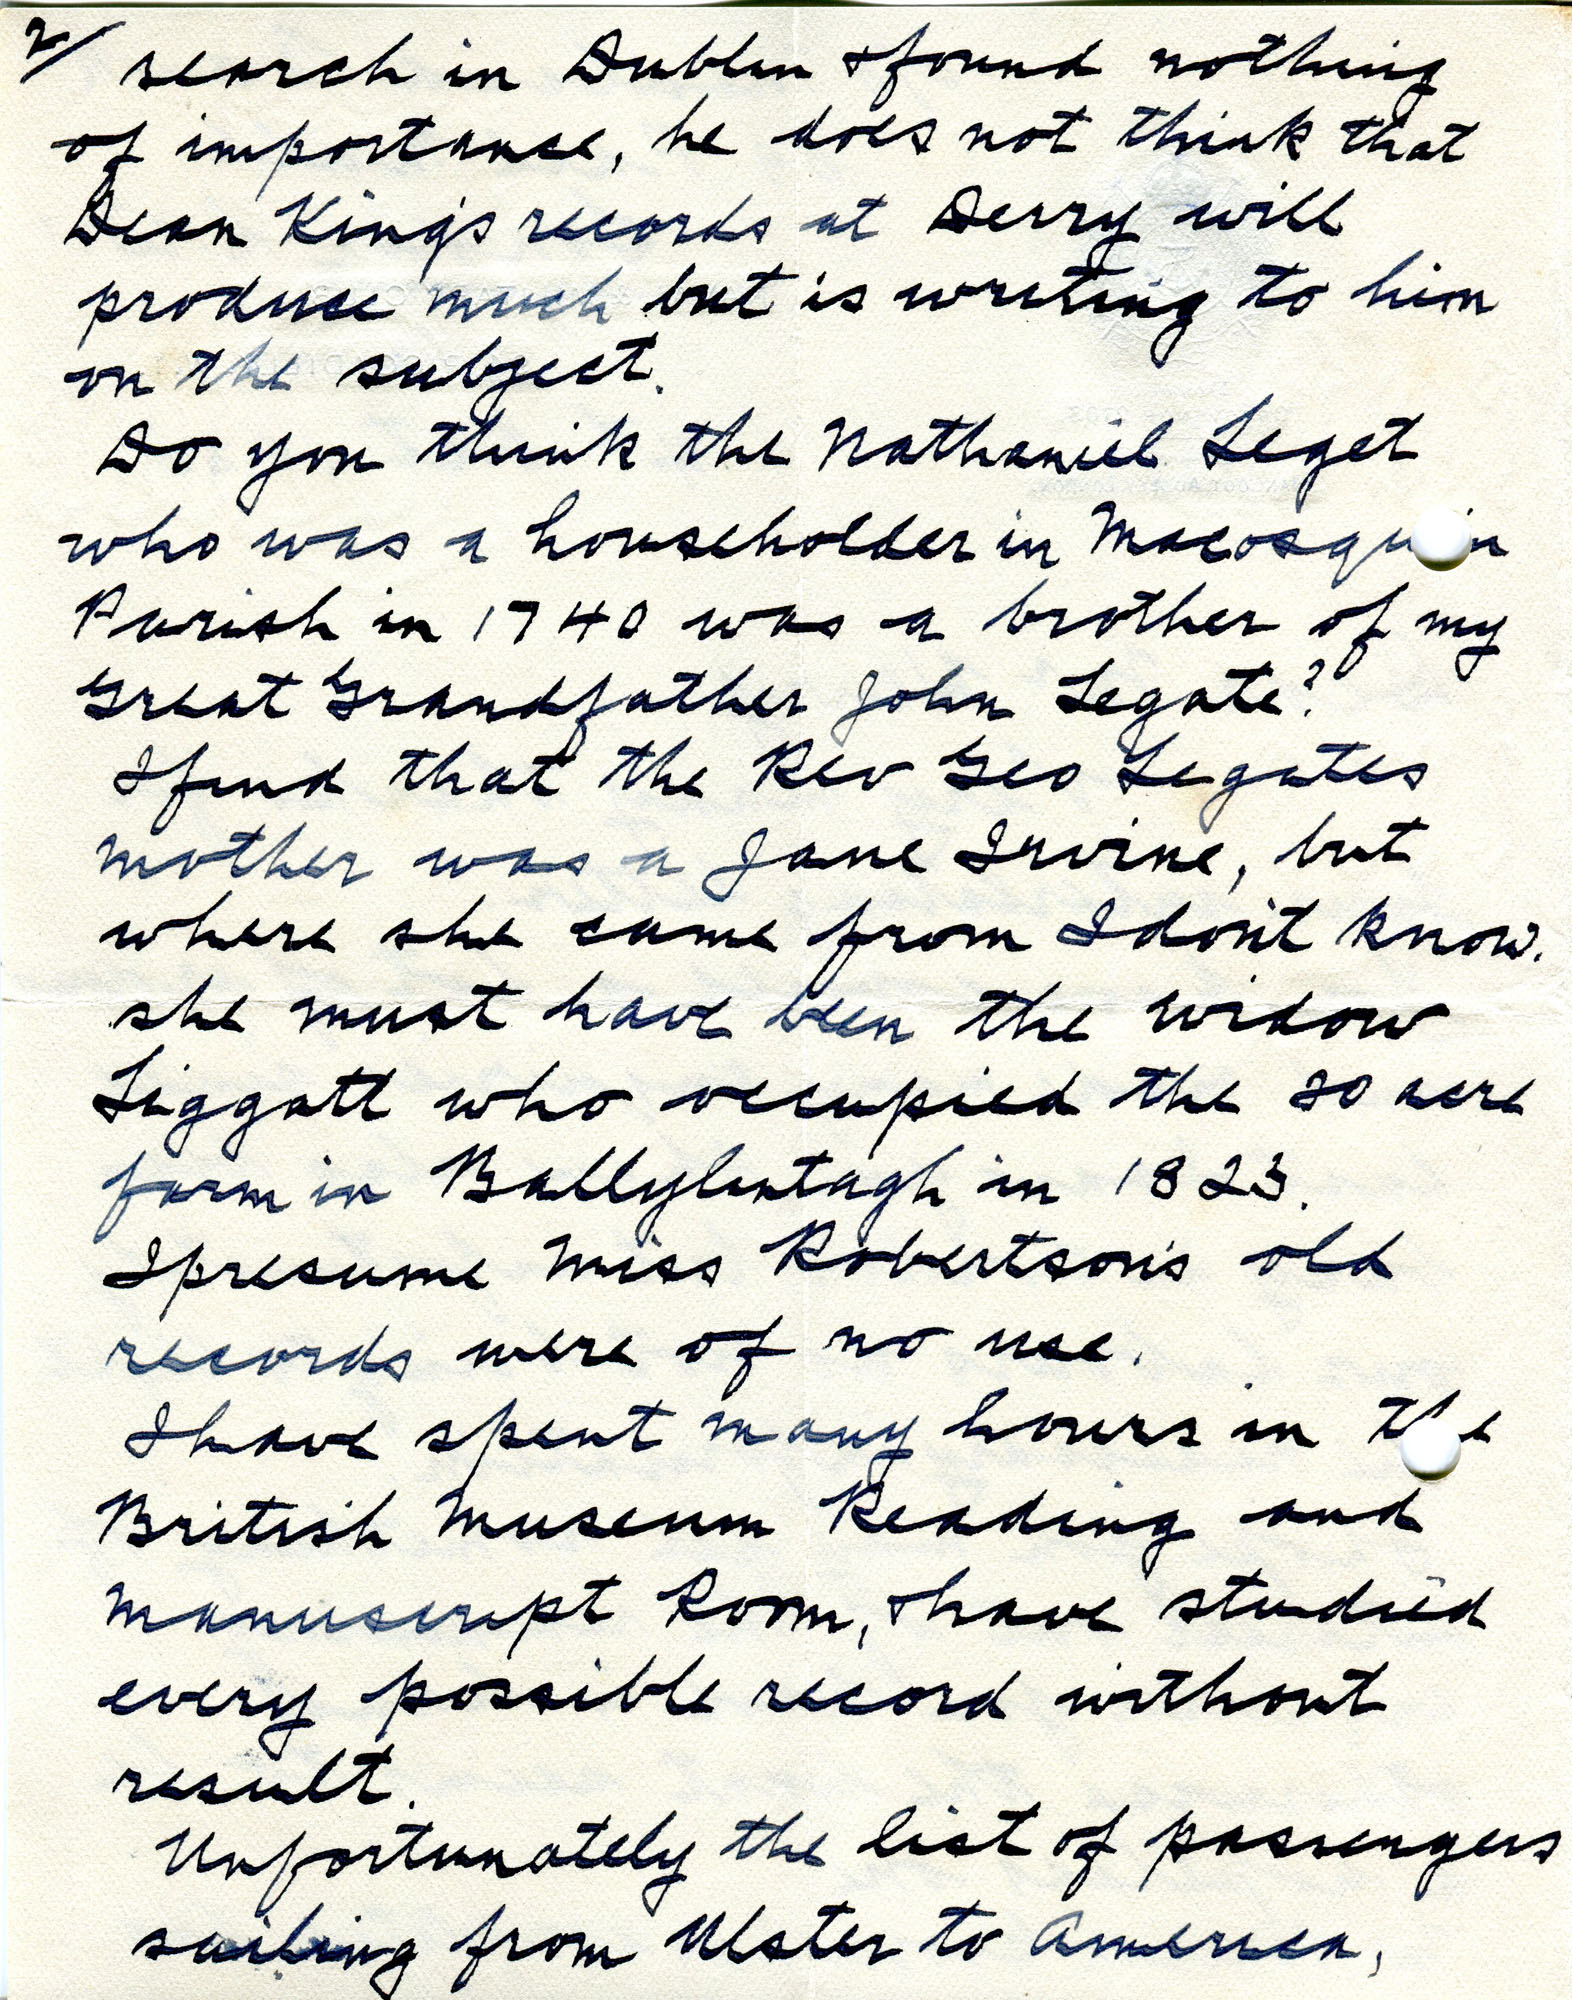 2/ search in Dublin & found nothing
of importance, he does not think that
Dean King's records at Derry will
produce much but is writing to him
on the subject.
Do you think the Nathaniel Leget
who was a householder in Macosquin
Parish in 1740 was a brother of my
Great Grandfather John Legate?
I find that the Rev Geo Legates
mother was a Jane Irvine, but
where she came from I don't know.
she must have been the widow
Liggatt who occupied the 20 acre
farm in Ballylintagh in 1823.
I presume Miss Robertson's old
records were of no use.
I have spent many hours in the
British Museum Reading and
Manuscript Room, & have studied
every possible record without
result.
Unfortunately the list of passengers
sailing from Ulster to America,